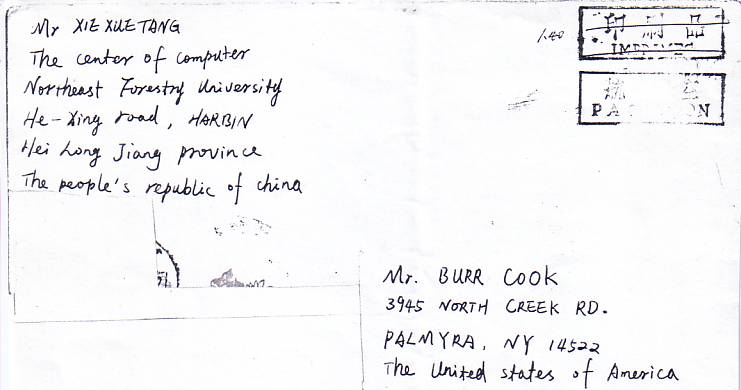 Mr XIE XUE TANG
The center of computer
Northeast Forestry University
He-Xing road, HARBIN
Hei Long Jiang province
The people's republic of china
1.40
印刷品
IMPRIMES
PAR AVION
Mr. BURR COOK
3945 NORTH CREEK RD.
PALMYRA, NY 14522
The United states of America